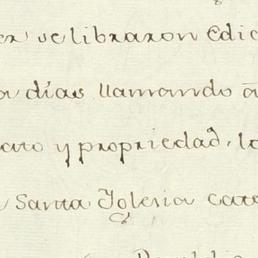 se libraron Edic
días llamando á
y propriedad, lo
Santa Yglesia cate